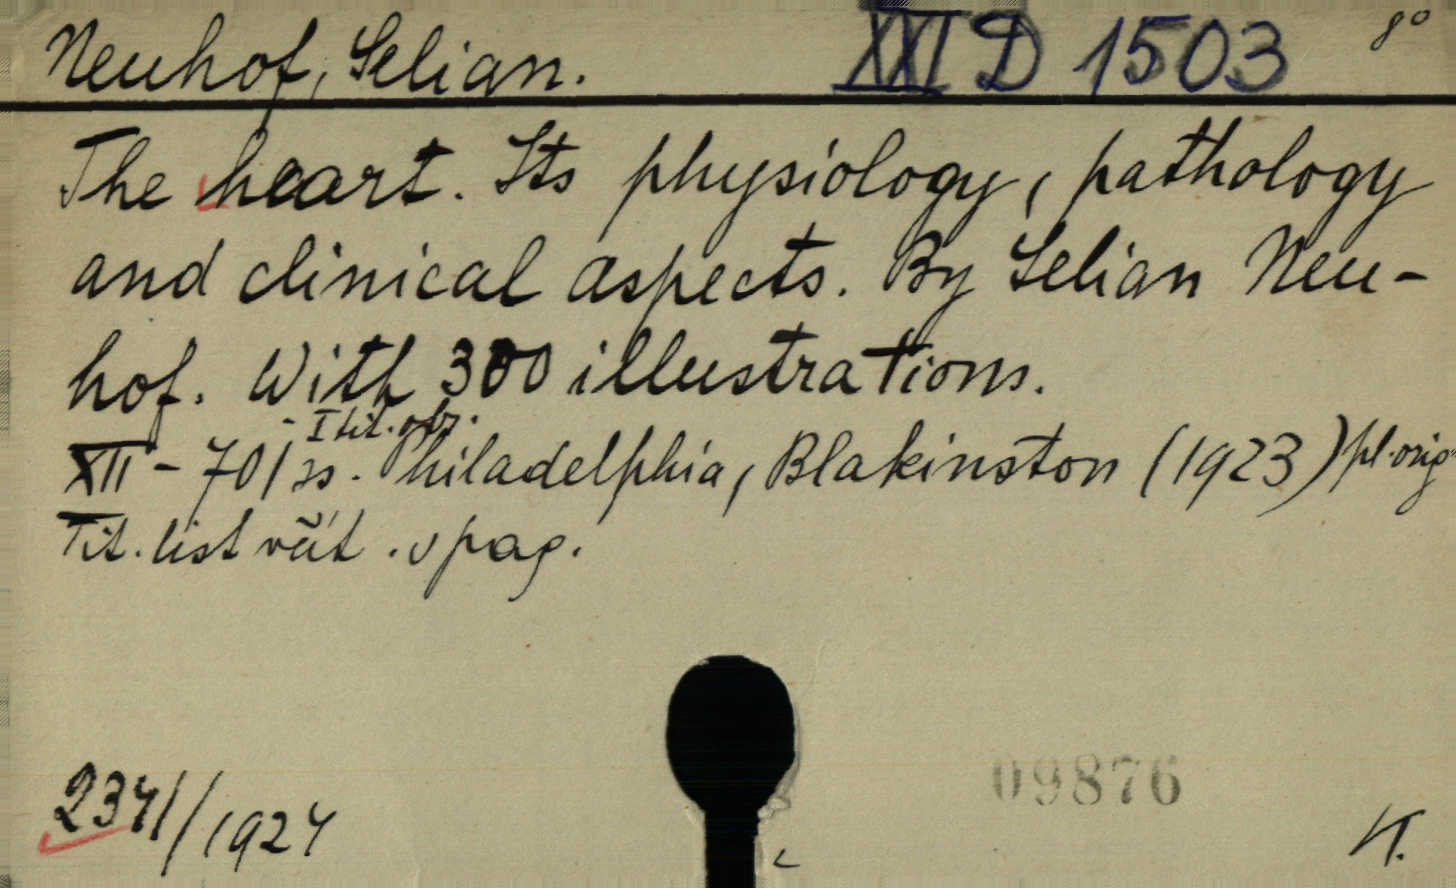 Neuhof, Selian. XXI D 1503 8°
The heart. Its physiology, pathology
and clinical aspects. By Selian Neu-
hof. With 300 illustrations.
- I tit. obr.
XII - 701 ss. Philadelphia, Blakinston (1923) pl. orig.
Tit. list včít. v pag.
2341/1924
09876
K.